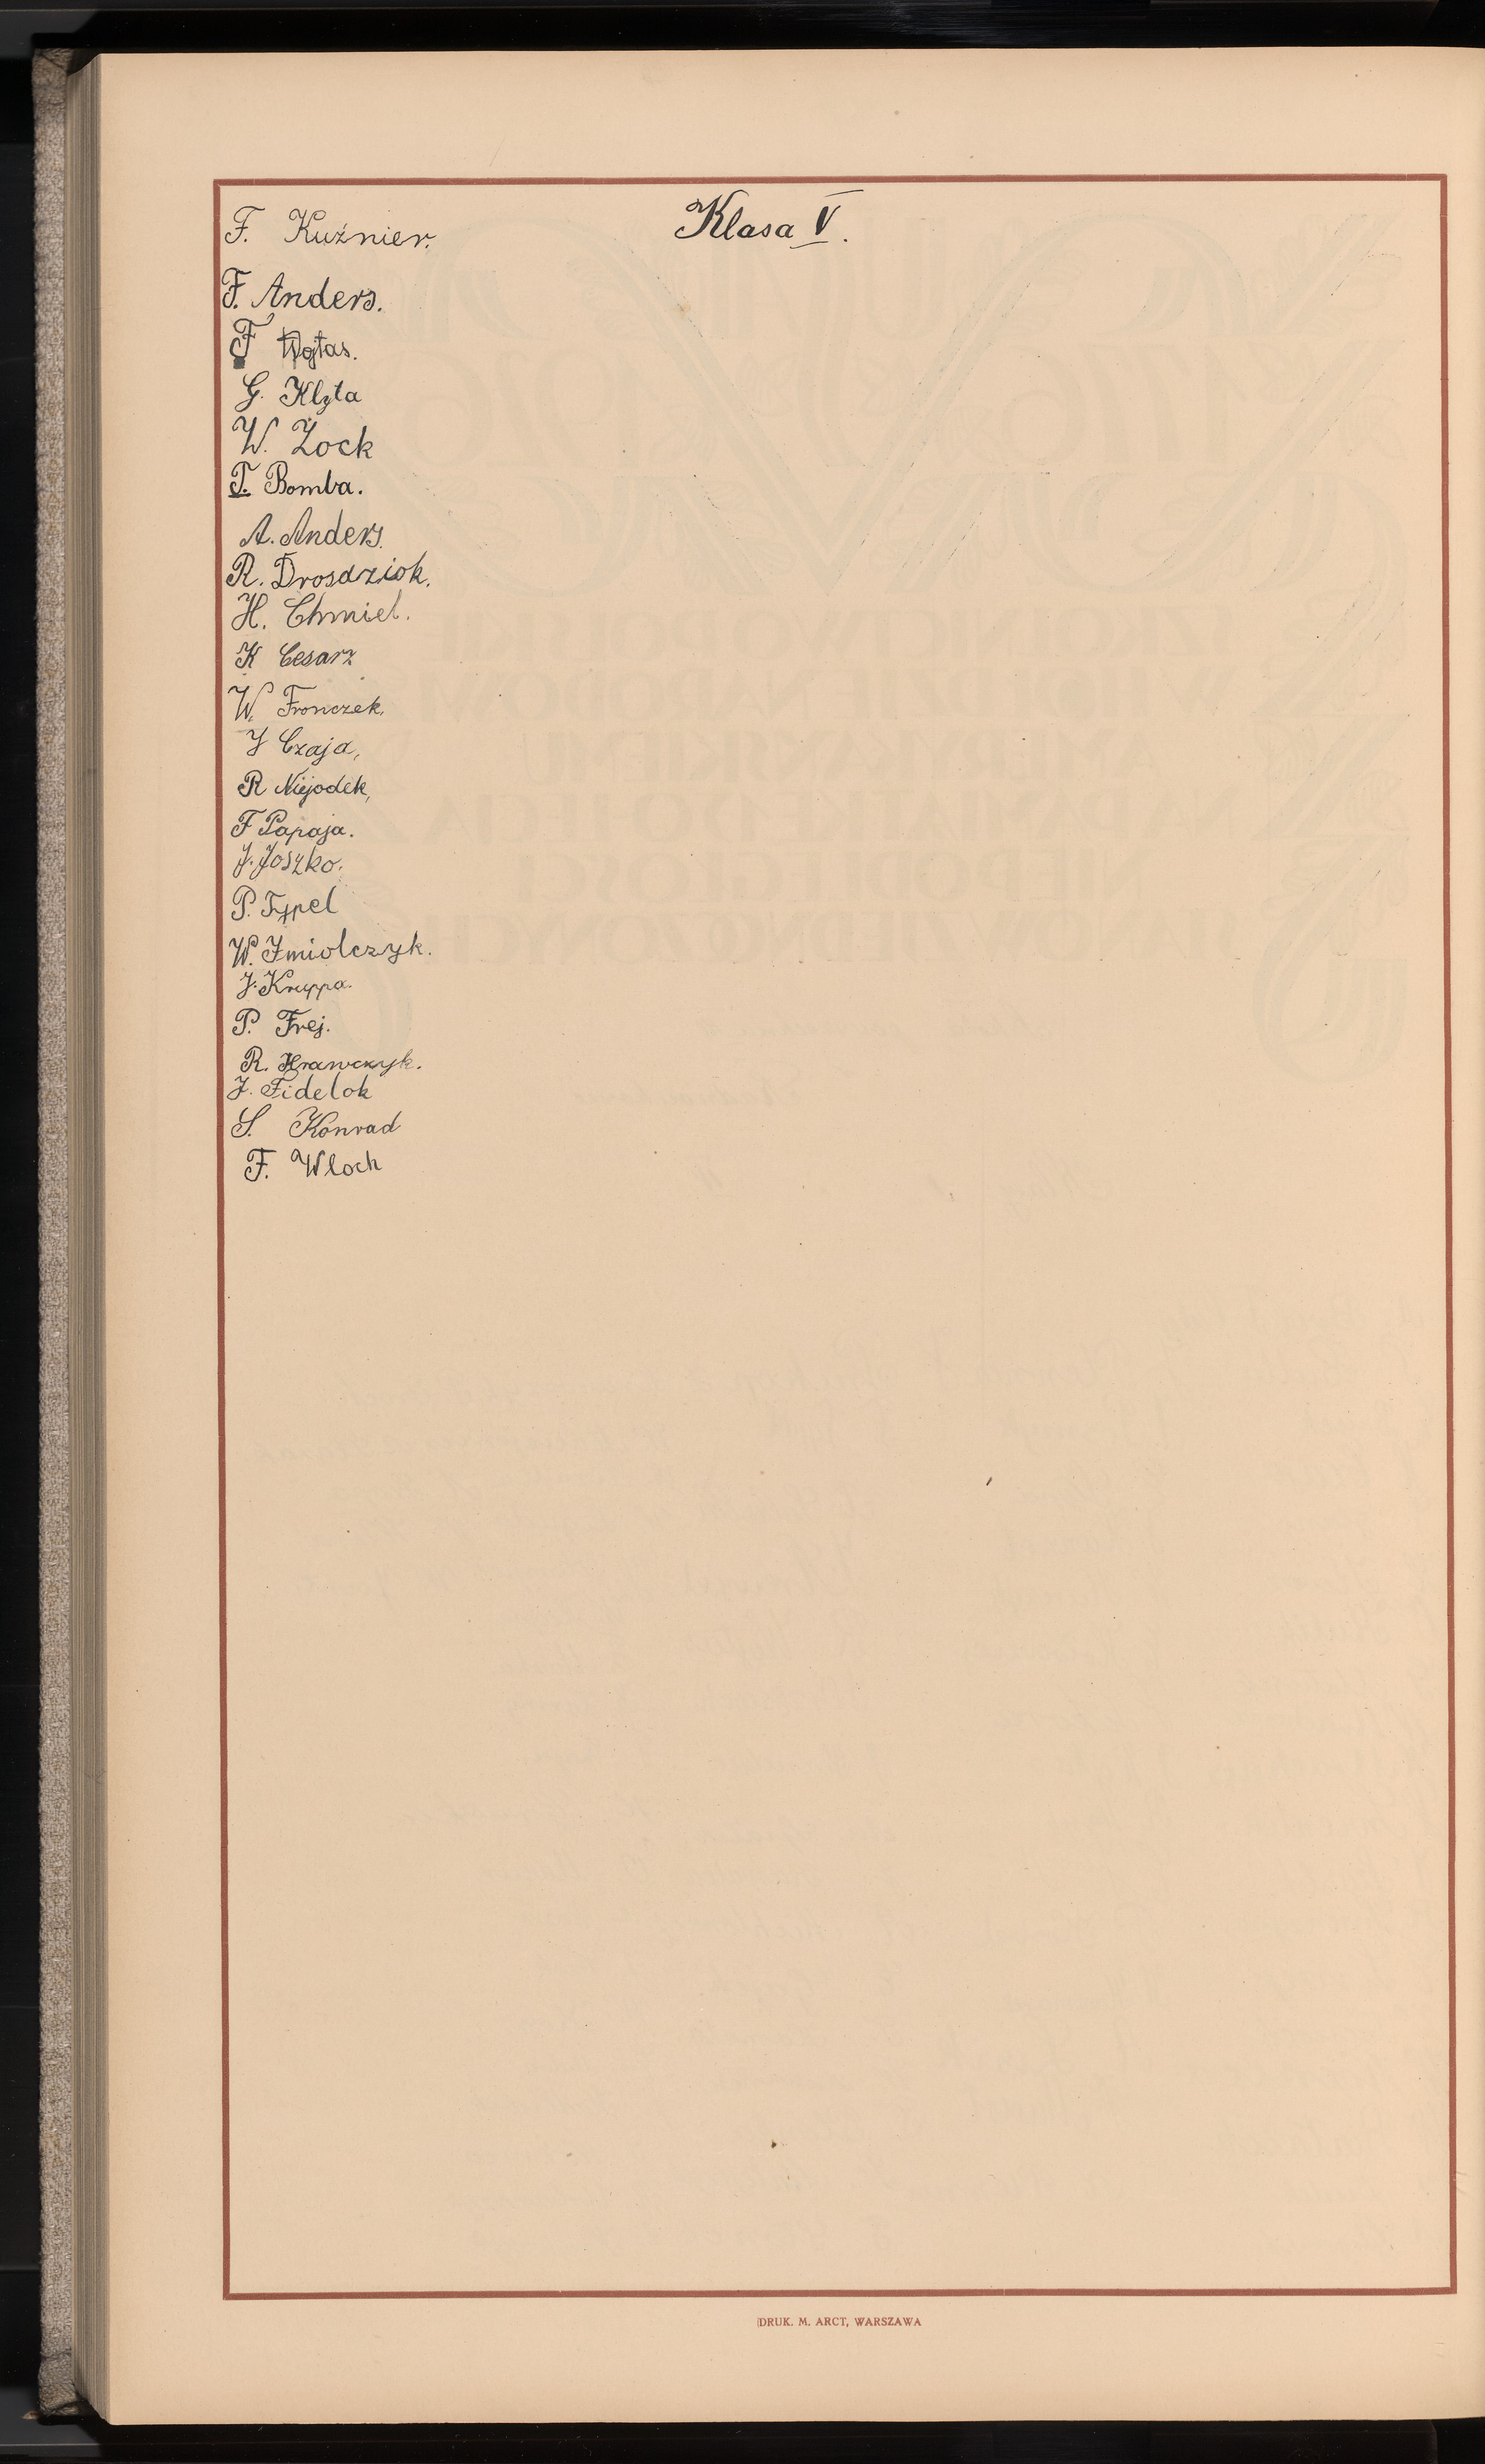 Klasa V.
F. Kuźnier.
F. Anders.
F Wojtas.
G. Klyta
W. Żock
T. Bomba.
A. Anders.
R. Drosdziok.
H. Chmiel.
K Cesarz
W. Fronczek,
J Czaja,
R Niejodek,
F Papaja.
J. Joszko.
P. Fypel
W. Imiolczyk.
J. Kruppa.
P. Frej.
R. Krawczyk.
J. Fidelok
S. Konrad
F. Wloch
DRUK. M. ARCT, WARSZAWA